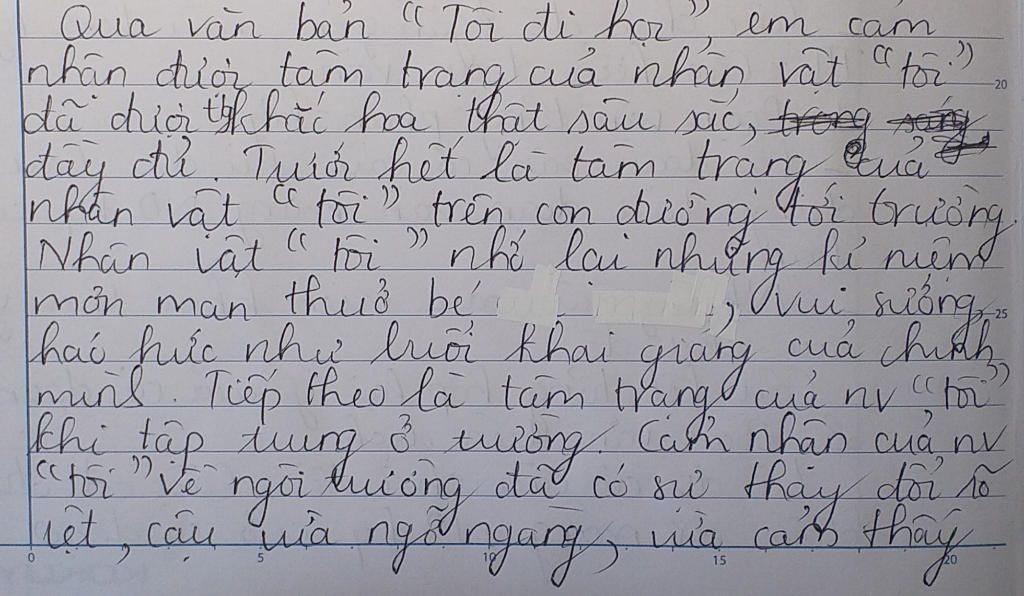 Qua văn bản "Tôi đi học", em cảm
nhận được tâm trạng của nhân vật "tôi"
đã được khắc họa thật sâu sắc,
đầy đủ. Trước hết là tâm trạng của
nhân vật "tôi" trên con đường tới trường.
Nhân vật "tôi" nhớ lại những kỉ niệm
mơn man thuở bé, vui sướng,
háo hức như buổi khai giảng của chính
mình. Tiếp theo là tâm trạng của nv "tôi"
khi tập trung ở trường. Cảm nhận của nv
"tôi" về ngôi trường đã có sự thay đổi rõ
rệt, cậu vừa ngỡ ngàng, vừa cảm thấy
0 5 10 15 20
20
25